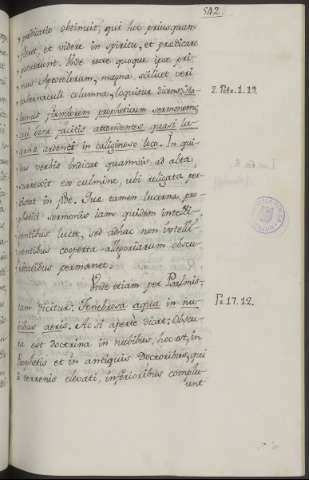 542
prædicatio obtinuit, qui hoc priusquam
fieret, et videre in spiritu, et prædicare
potuerunt. Unde recte quoque ipse pri-
mus Apostolorum, magna scilicet veri
tabernaculi columna, loquitur dicens: Ha-
bemus firmiorem propheticum sermonem,
cui bene facitis attendentes quasi lu-
cernæ ardenti in caliginoso loco. In qui-
bus verbis
2. Petr. 1. 19.
in fide. Sua tamen lucerna, pro-
phetici sermonis iam quidem intelli-
gentibus lucet, sed adhuc non intelli-
gentibus cooperta allegoriarum obscu-
ritatibus permanet.
Unde etiam per Psalmis-
tam dicitur: Tenebrosa aqua in nu-
bibus aeris. Ac si aperte dicat: Obscu-
ra est doctrina in nubibus, hoc est, in
Prophetis et in antiquis Doctoribus, qui
a terrenis elevati, inferioribus complu-
unt
Ps. 17. 12.